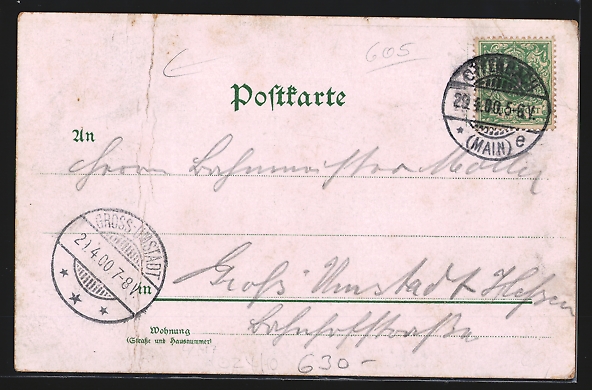 605
Postkarte
29.4.00.5-6V.
(MAIN) e
An
Herrn Bahnmeister Müller
GROSS-UMSTADT
29.4.00.7-8V.
in Groß Umstadt Hessen
Wohnung
(Straße und Hausnummer)
Bahnhofstraße
630-